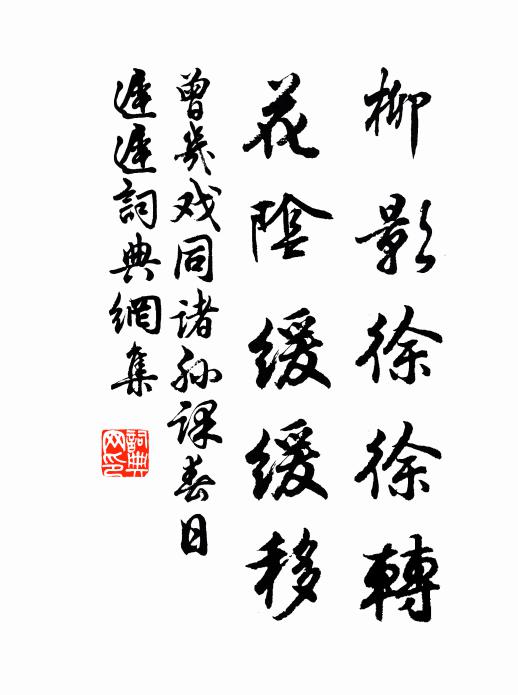 柳影徐徐轉
花陰緩緩移
曾幾戏同諸孙課春日
遲遲詞典網集
詞典
网印